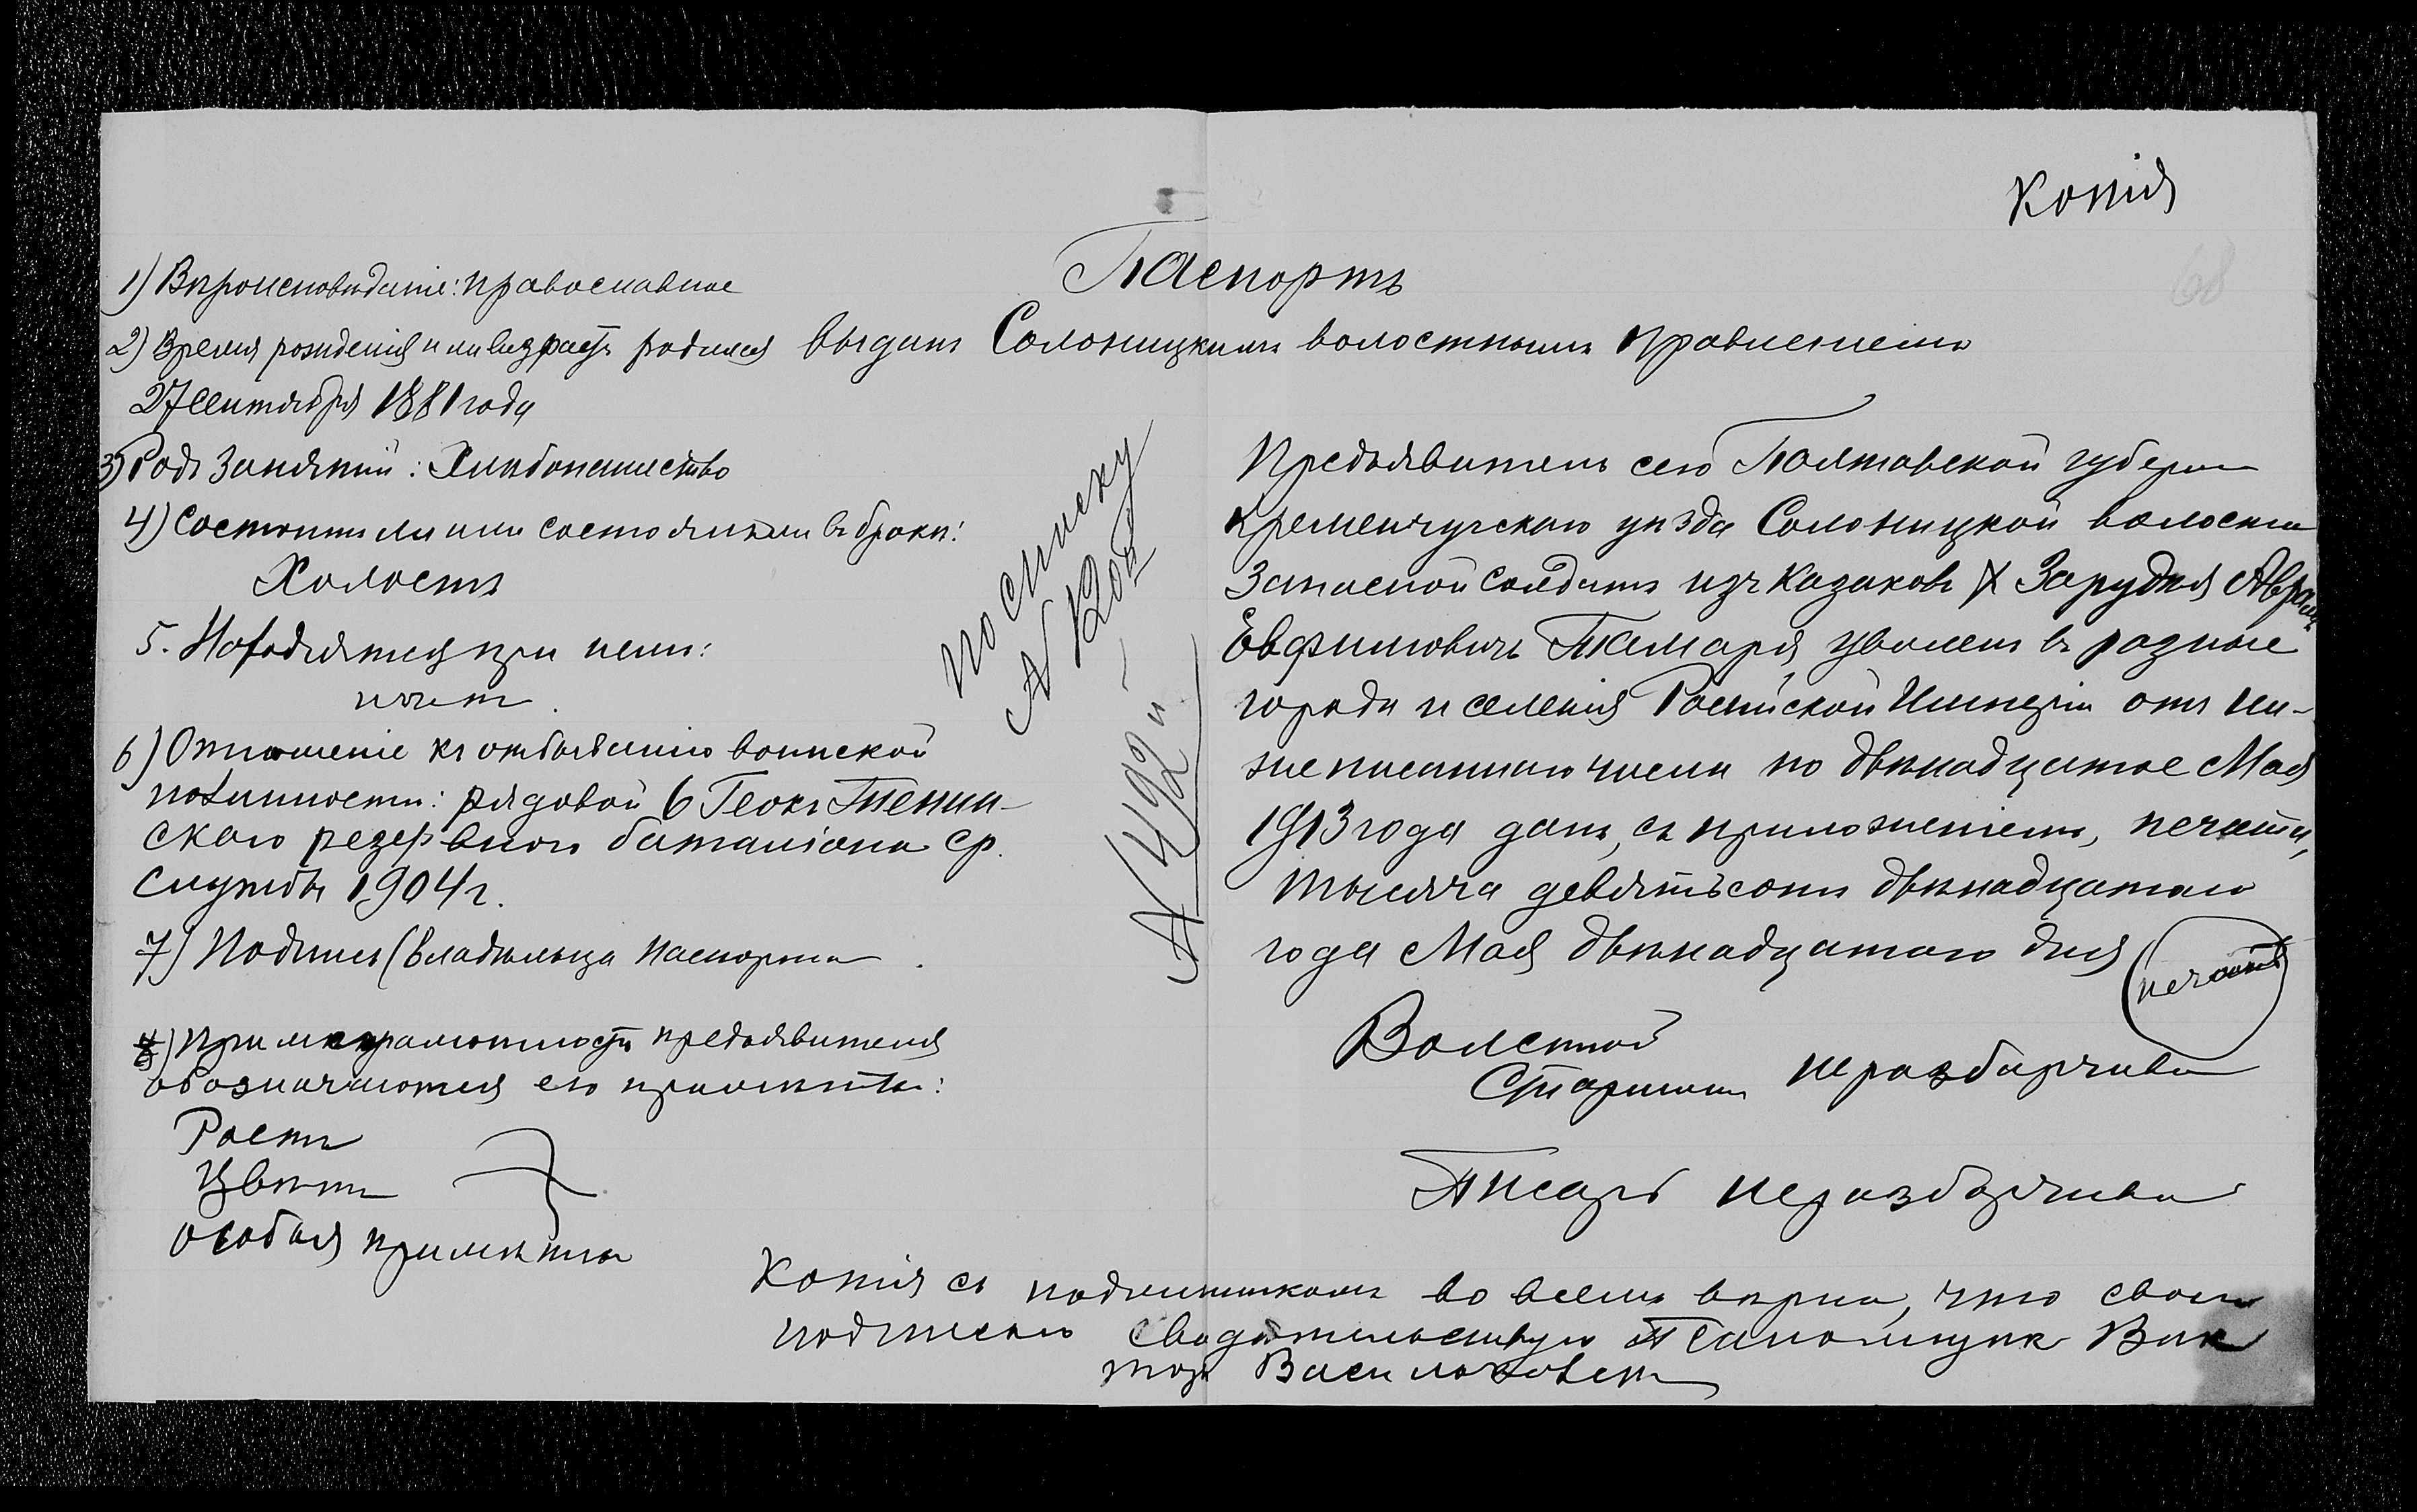 Копія
68
Паспортъ
выданъ Солоницкимъ волостнымъ правленіемъ
1) Вѣроисповѣданіе: православное
2) Время рожденія или возрастъ родился
27 Сентября 1881 года
3) Родъ занятий: Хлѣбопашество
4) Состоитъ ли или состоялъ ли въ бракѣ:
Холостъ
5. Находятся при немъ:
нѣтъ.
6) Отношеніе къ отбыванію воинской
повинности: рядовой 6 Геокъ Тепин-
скаго резервнаго баталіона ср.
службы 1904 г.
7) Подпись (владѣльца паспорта
8) При неграмотности предъявителя
обозначаются его примѣты:
Ростъ
Цвѣтъ
особыя примѣты
по списку
№ 120й
№ 492 й
Предъявитель сего Полтавской губерни
Кременчугскаго уѣзда Солоницкой волости
Запасной Солдатъ изъ Казаковъ х Зарудня Аврамъ
Евфимовичъ Тамаря, уволенъ въ разные
города и селенія Россійской Имперіи отъ ни-
жеписаннаго числа по двѣнадцатое Мая
1913 года данъ, съ приложеніемъ, печати,
тысяча девятьсотъ двѣнадцатаго
года Мая двѣнадцатаго дня
печать
Волостной
Старшина неразборчиво
Писарь неразборчиво
Копія съ подлинникомъ во всемъ вѣрна, что своею
подписью свидѣтельствую Вик
торъ